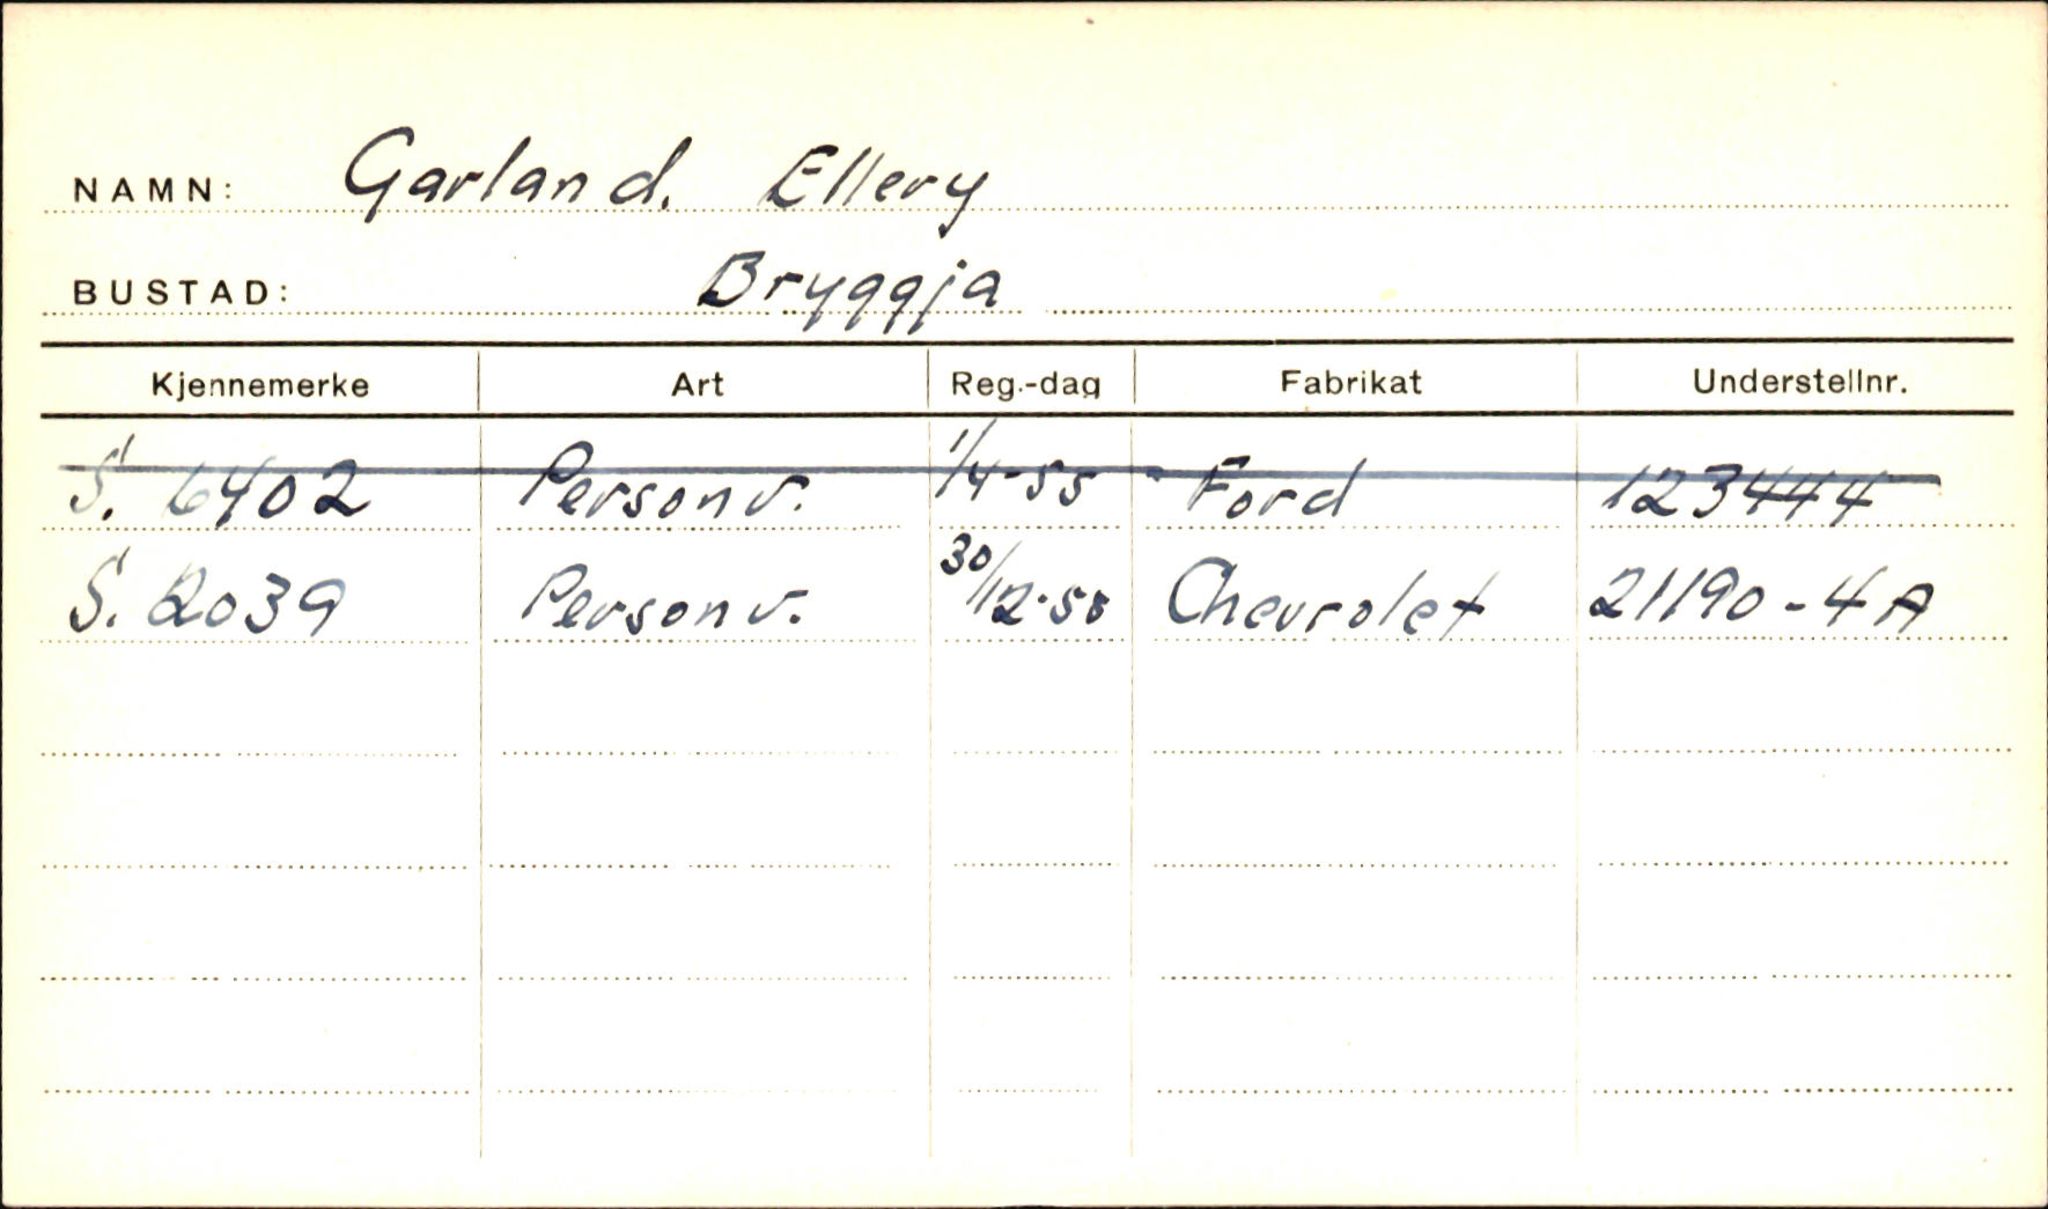 NAMN: Garland. Ellery
BUSTAD: Bryggja
Kjennemerke Art Reg.-dag Fabrikat Understellnr.
S. 6402 Personv. 1/4-55 Ford 123444
S. 2039 Personv. Chevrolet 21190-4A